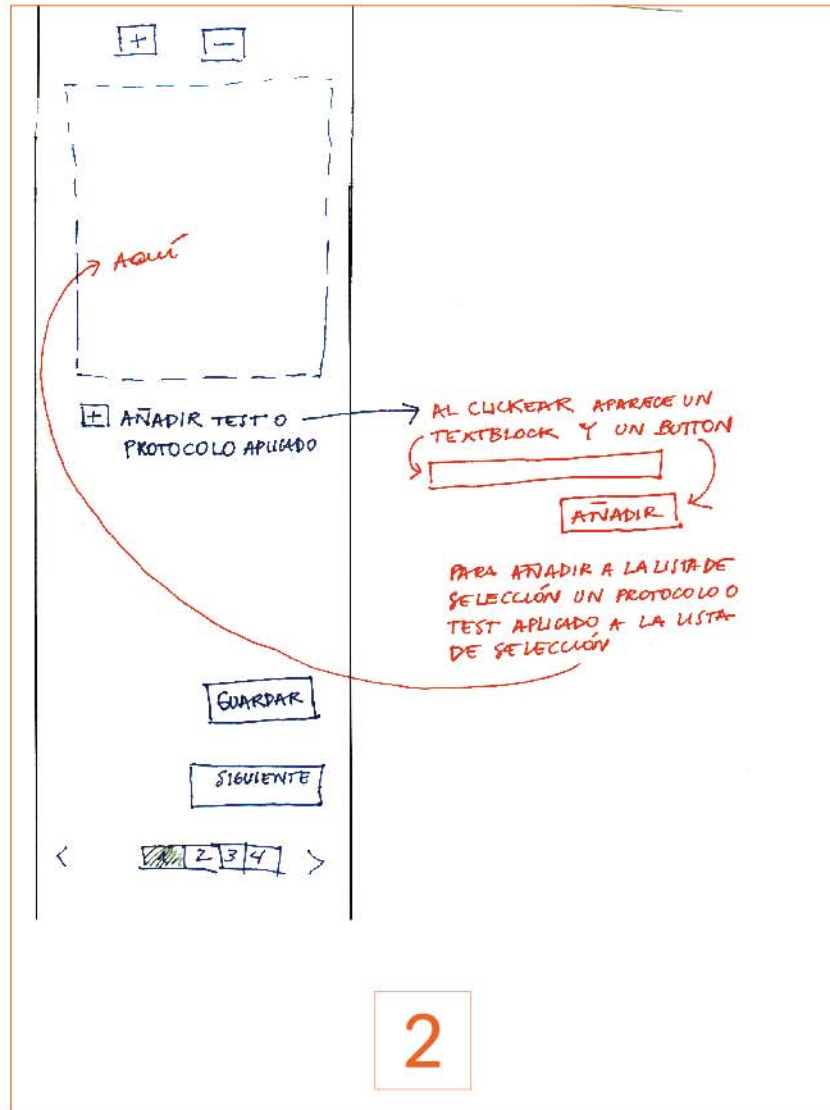 + −
AQUÍ
+ AÑADIR TEST O
PROTOCOLO APLICADO
AL CLICKEAR APARECE UN
TEXTBLOCK Y UN BUTTON
AÑADIR
PARA AÑADIR A LA LISTA DE
SELECCIÓN UN PROTOCOLO O
TEST APLICADO A LA LISTA
DE SELECCIÓN
GUARDAR
SIGUIENTE
< 1 2 3 4 >
2